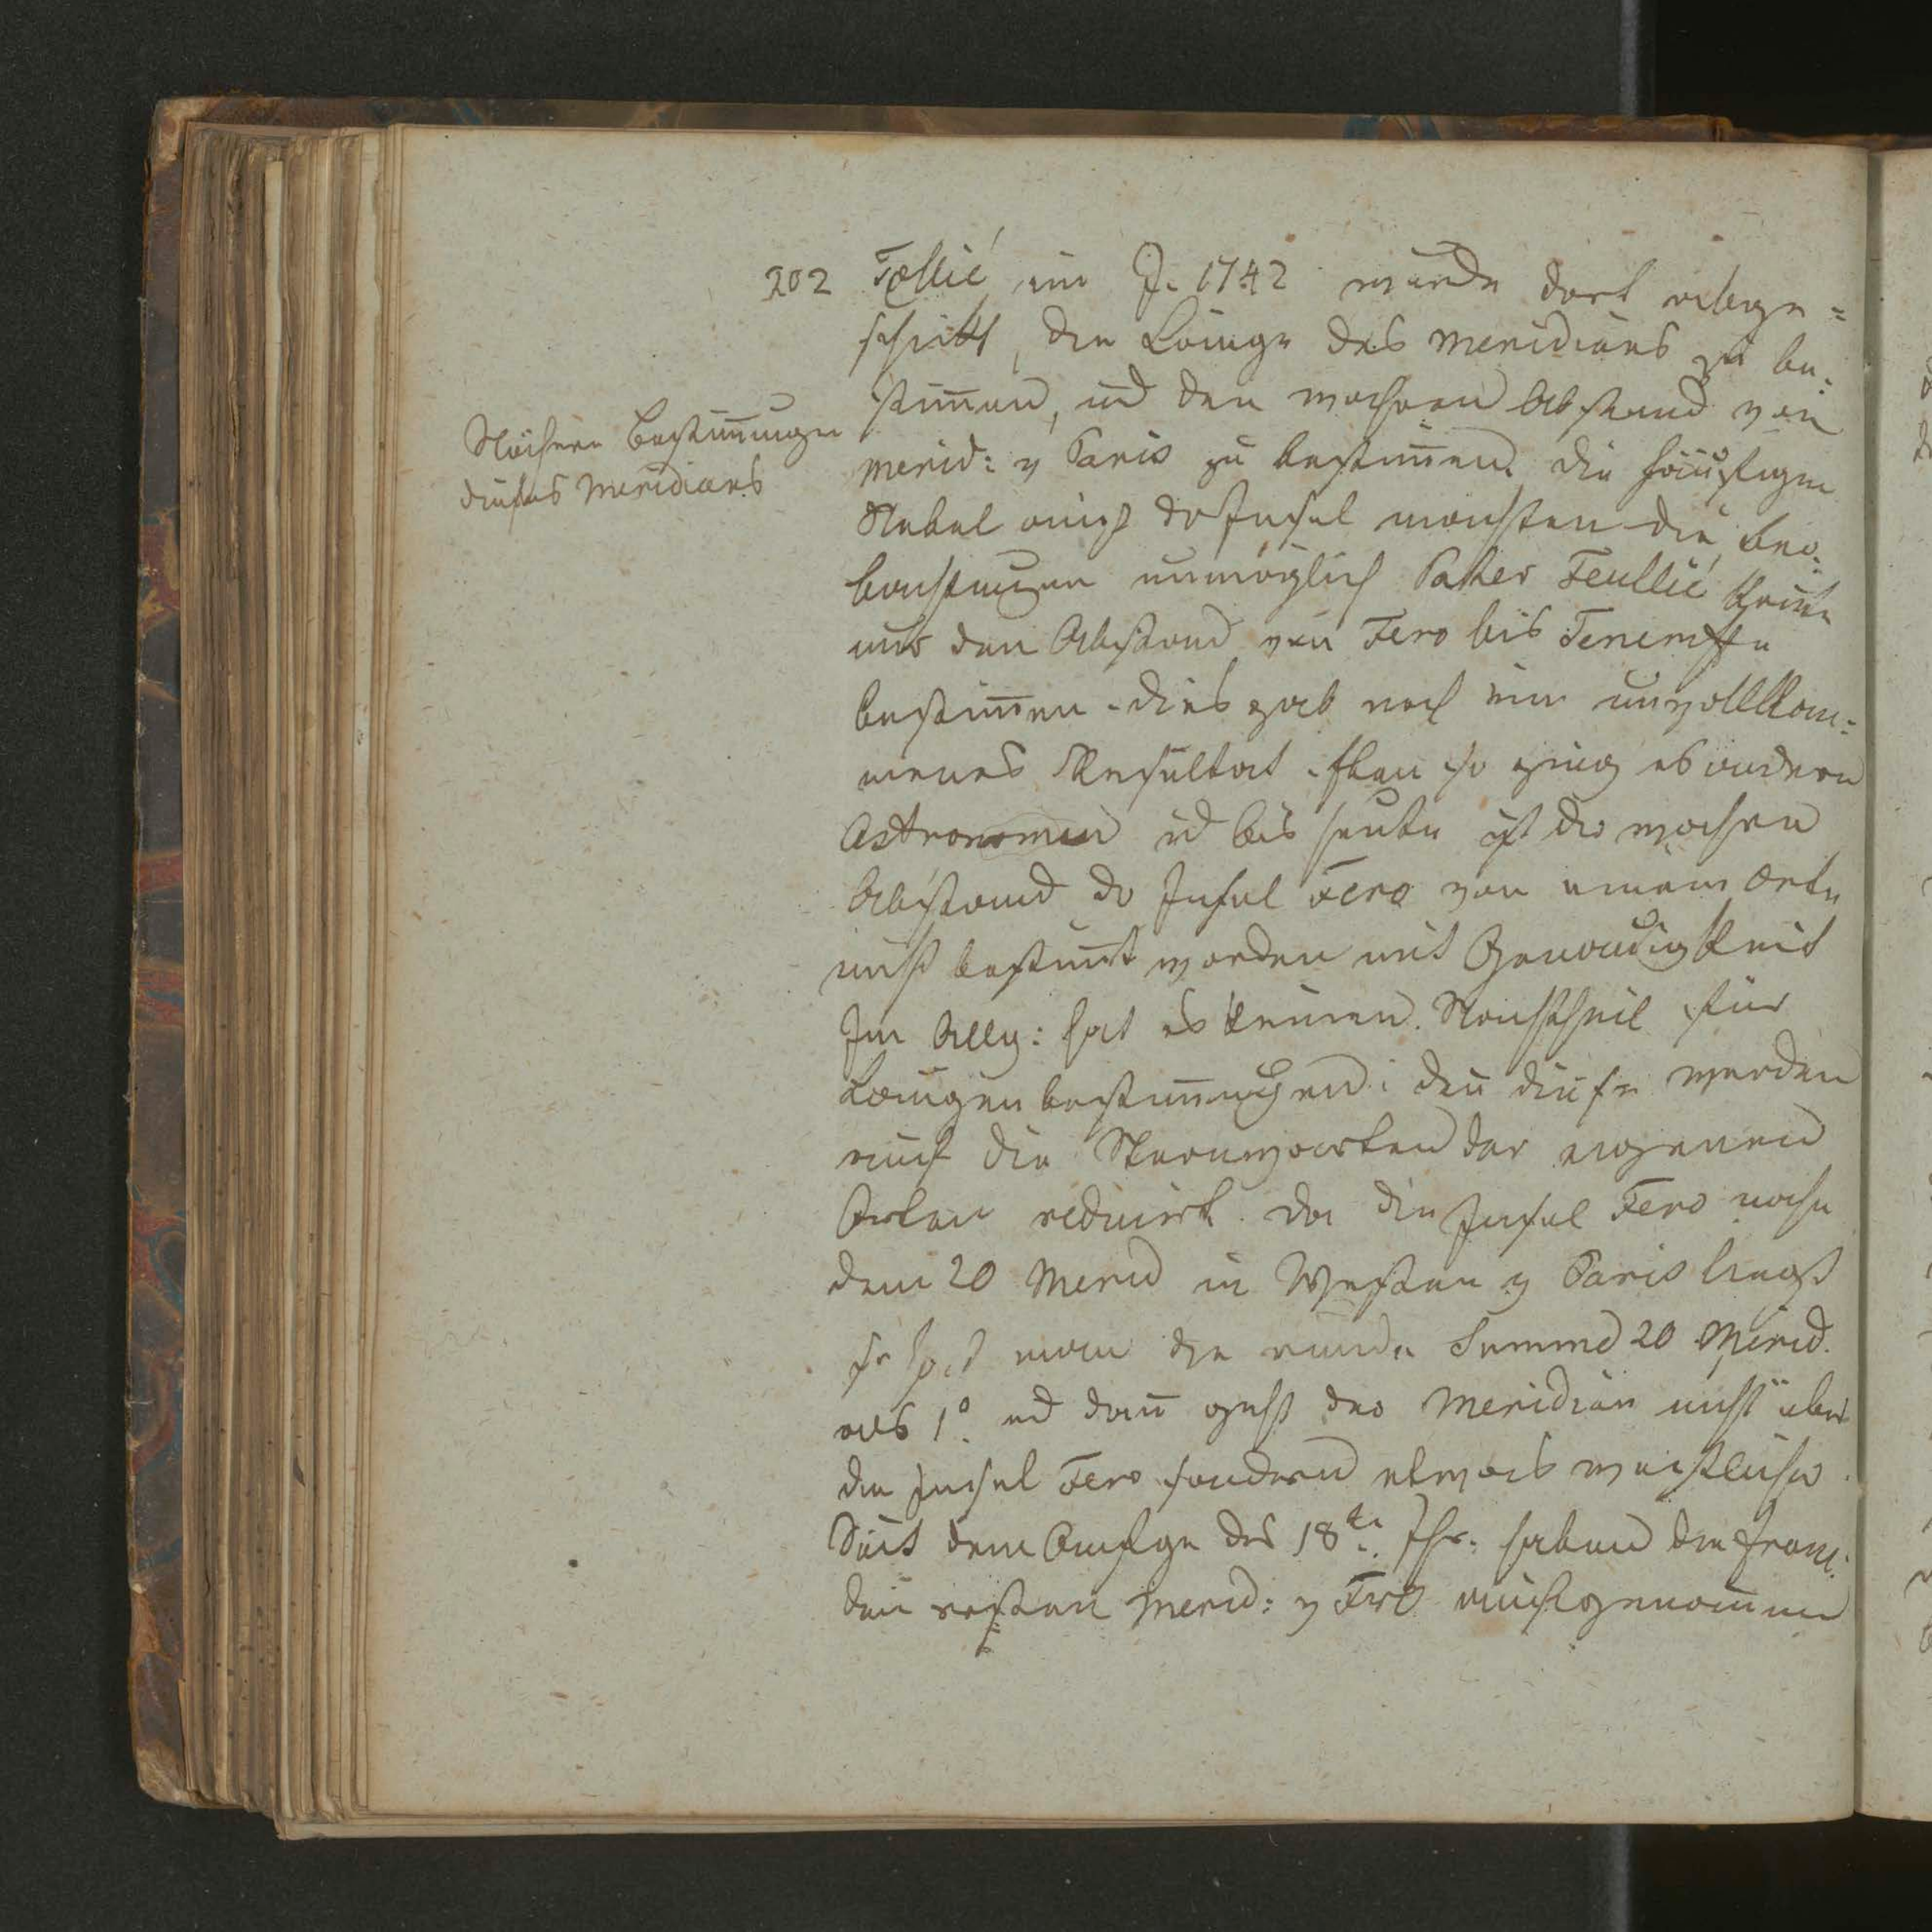 202 Fællié im J. 1742 wurde dort abge=
schickt, die Länge des Meridians zu be=
Nähere Bestim̄ungen
dieses Meridians
stim̄en, ud den wahren Abstand von
Merid: v Paris zu bestim̄en. die häufigen
Nebel auf der Insel machten die beo=
bachtungen unmöglich Pater Feullié konte
nur den Abstand von Fero bis Teneriffa
bestim̄en. dies gab noch ein unvollkom=
menes Resultat. Eben so ging es andern
Astronomen ud bis heute ist der wahre
Abstand der Insel Fero von einem Orte
nicht bestim̄t worden mit Genauigkeit
Im Allg: hat es keinen Nachtheil für
Längenbestim̄ungen: den̄ diese werden
auf die Sternwarten der eigenen
Orten reducirt. da die Insel Fero nahe
dem 20 Merid in Westen v Paris liegt
so hat man die runde Summe 20 Merid.
als 1° ud dan̄ geht der Meridian nicht über
die Insel Fero sondern etwas westlicher.
Seit dem Anfge des 18te Jhr: haben die Franz.
den ersten Merid: v Fro angenom̄en